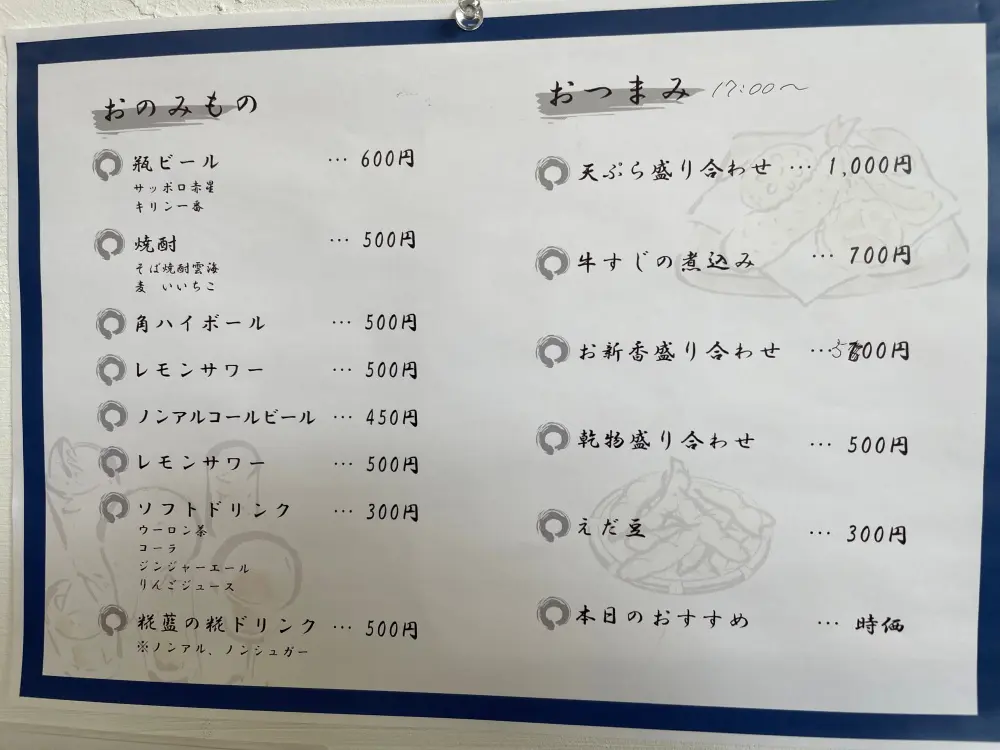 おのみもの
瓶ビール … 600円
サッポロ赤星
キリン一番
焼酎 … 500円
そば焼酎雲海
麦 いいちこ
角ハイボール … 500円
レモンサワー … 500円
ノンアルコールビール … 450円
レモンサワー … 500円
ソフトドリンク … 300円
ウーロン茶
コーラ
ジンジャーエール
りんごジュース
糀藍の糀ドリンク … 500円
※ノンアル、ノンシュガー
おつまみ 17:00〜
天ぷら盛り合わせ … 1,000円
牛すじの煮込み … 700円
お新香盛り合わせ … 500円
乾物盛り合わせ … 500円
えだ豆 … 300円
本日のおすすめ … 時価